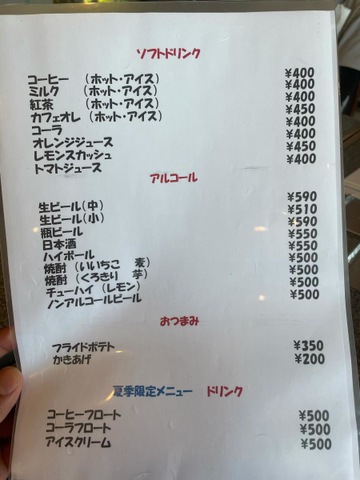 ソフトドリンク
コーヒー （ホット・アイス） ¥400
ミルク （ホット・アイス） ¥400
紅茶 （ホット・アイス） ¥400
カフェオレ （ホット・アイス） ¥450
コーラ ¥400
オレンジジュース ¥400
レモンスカッシュ ¥450
トマトジュース ¥400
アルコール
生ビール（中） ¥590
生ビール（小） ¥510
瓶ビール ¥590
日本酒 ¥550
ハイボール ¥550
焼酎（いいちこ 麦） ¥500
焼酎（くろきり 芋） ¥500
チューハイ（レモン） ¥500
ノンアルコールビール ¥500
おつまみ
フライドポテト ¥350
かきあげ ¥200
夏季限定メニュー ドリンク
コーヒーフロート ¥500
コーラフロート ¥500
アイスクリーム ¥500